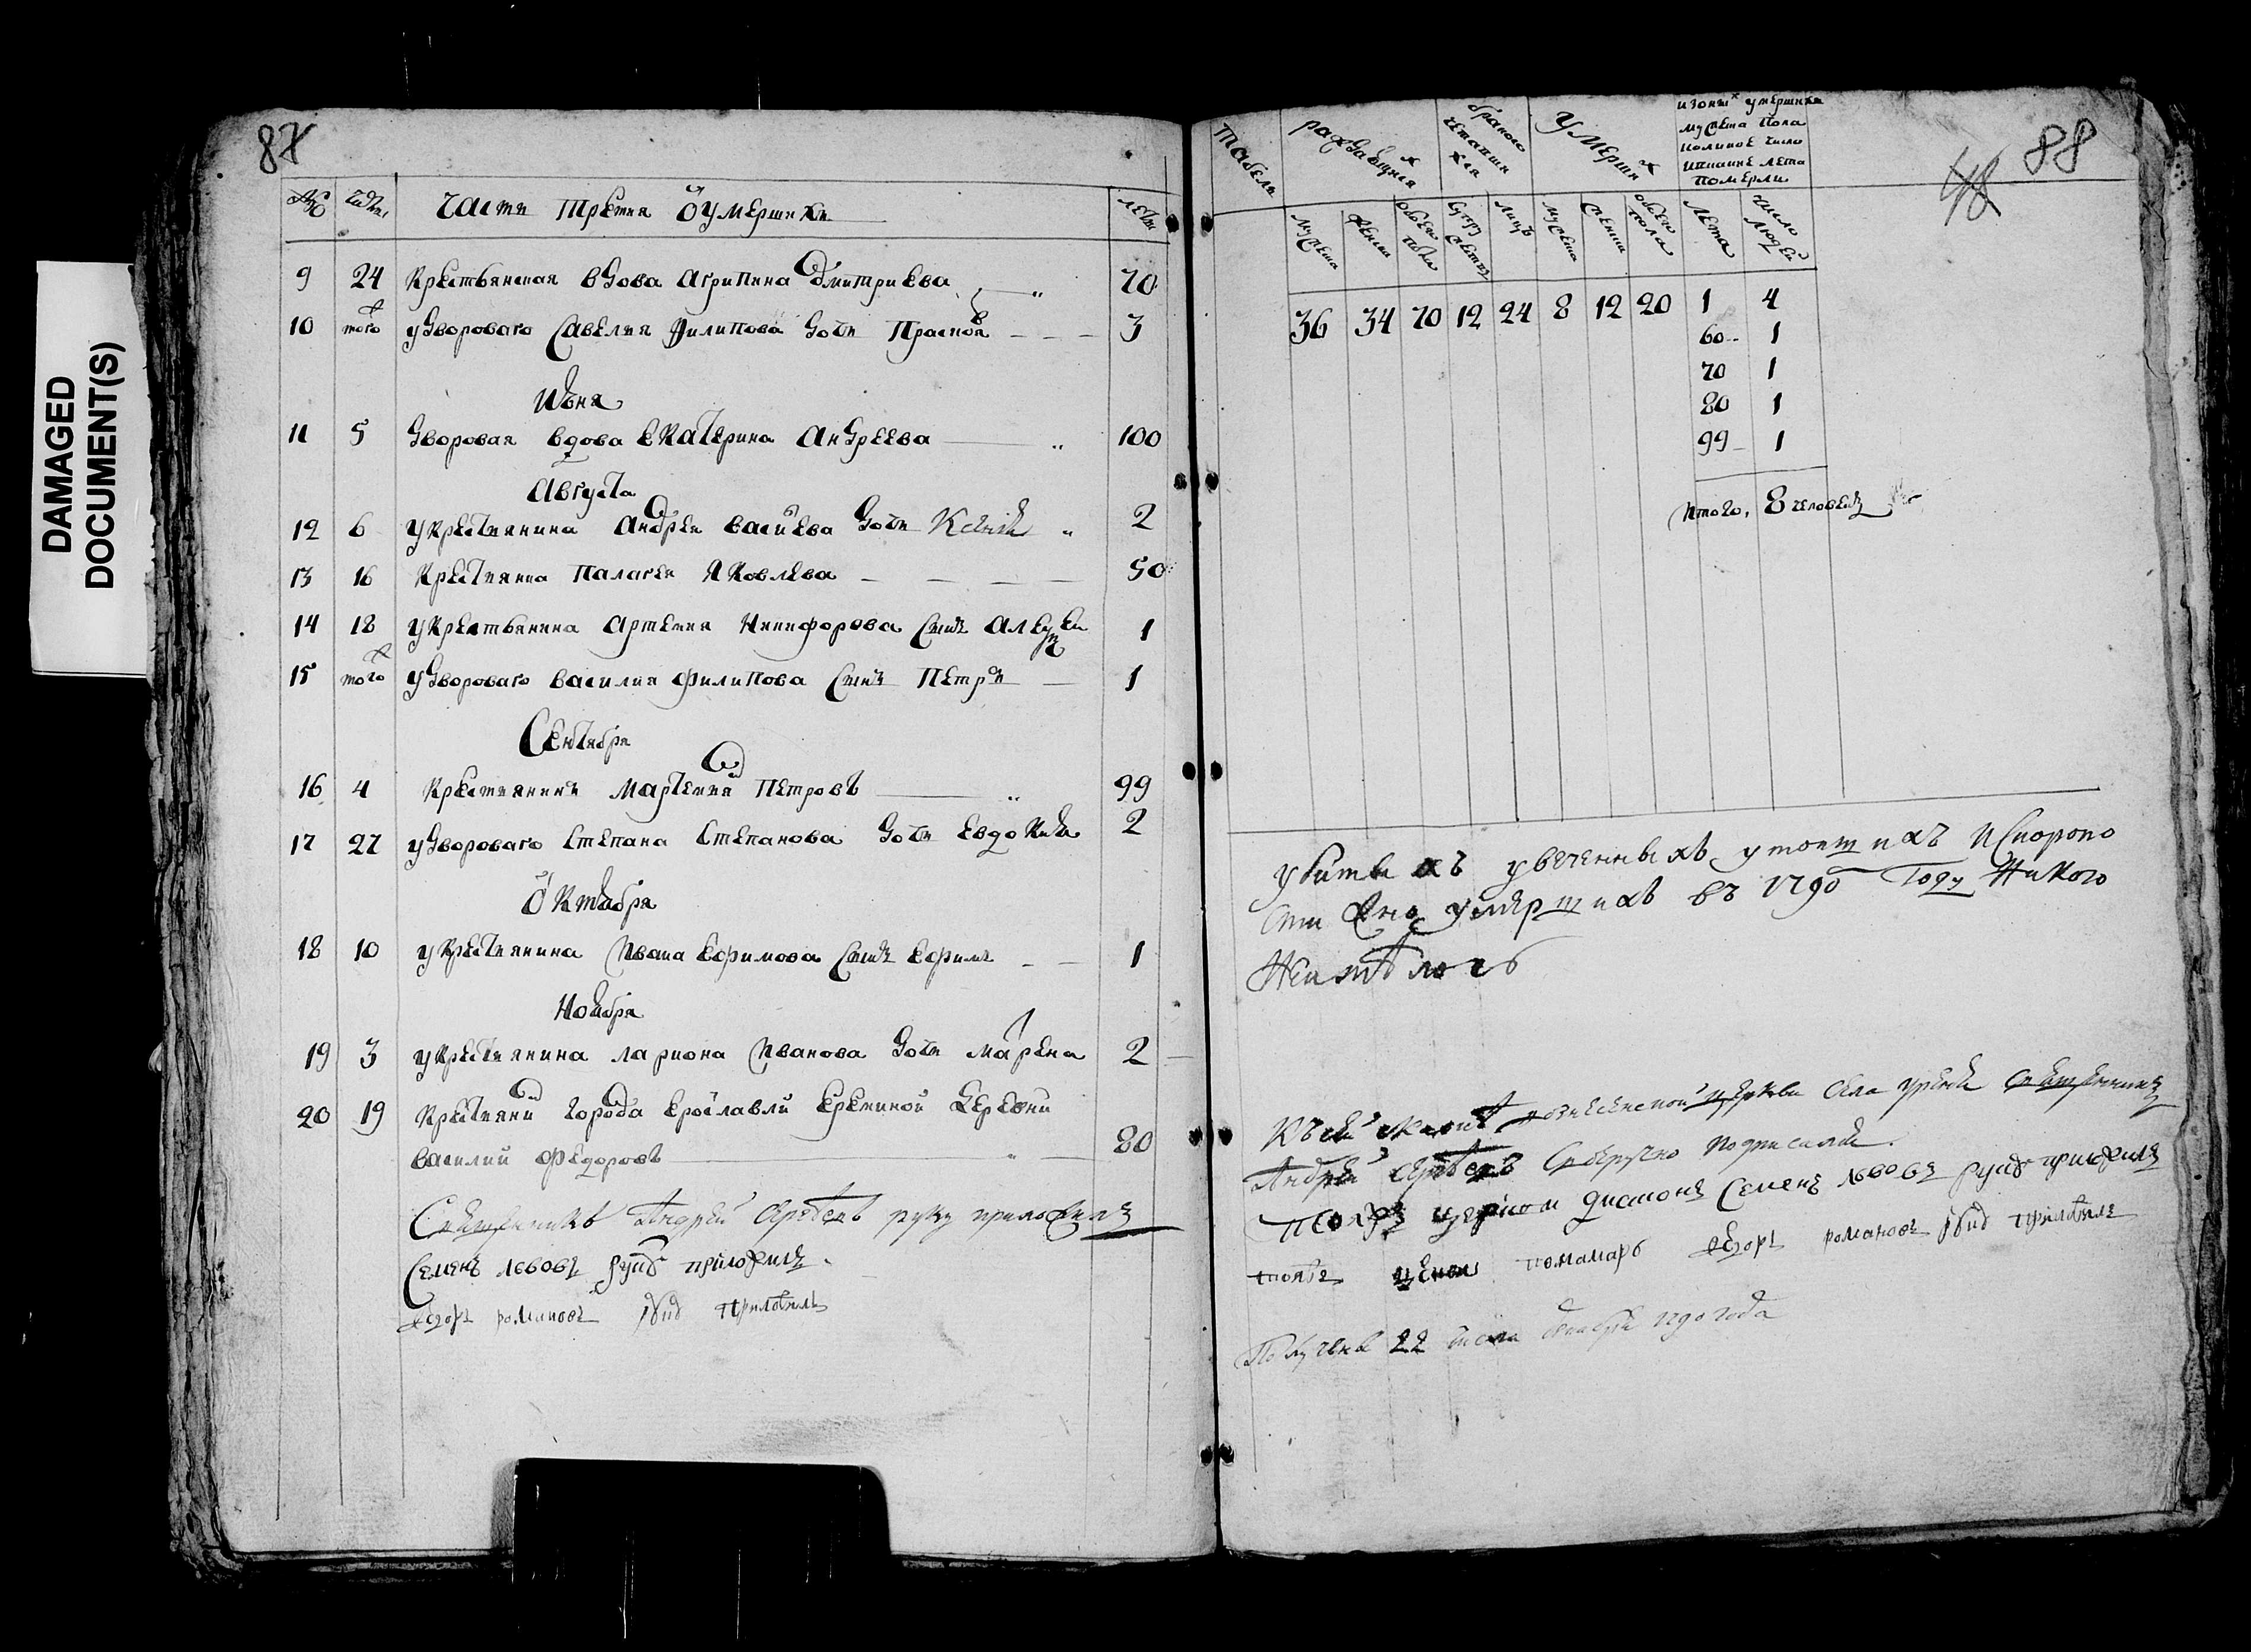 DAMAGED
DOCUMENT(S)
87
№ числ. часть третия о умерших лета
9 24 крестьянская вдова агрипина дмитриева 70
10 того ж у двороваго савелия филипова дочь прасковя 3
июня
11 5 дворовая вдова екатерина андреева 100
августа
12 6 у крестьянина андрея васильева дочь 2
13 16 крестьянка палагея яковлева 50
14 18 у крестьянина артемия никифорова сынъ алексей 1
15 того ж у двороваго василия филипова сынъ петръ 1
сентебря
16 4 крестьянинъ мартемей петровъ 99
17 27 у двороваго степана степанова дочь евдокия 2
октября
18 10 у крестьянина ивана ефимова сынъ ефимъ 1
ноября
19 3 у крестьянина лариона иванова дочь марена 2
20 19 крестьяни города ерославли деревни
василий федоровъ 80
Священникъ Андрей Сергеевъ руку приложилъ
Семенъ львовъ руку приложилъ
Федоръ романовъ руку приложилъ
88
48
табель раждавшихся браком сочетавшихся умерших из онех умерших
мужеска пола
коликое число
и в какие лета
померли
мужеска женска обоего пола супружеств лицъ мужеска женска обоего пола лета число людей
36 34 70 12 24 8 12 20 1 4
60 1
70 1
80 1
99 1
Итого, 8 человекъ
убитых увеченныхъ утопшихъ и скоропо
стижно умершихъ въ 1790 Году Никого
Неимелось
Къ сей вознесенской церкви села священникъ
Андрей Сергеевъ Своеручно подписался.
тояжъ церкви диаконъ Семенъ львовъ руку приложилъ
тояже церкви пономарь Федоръ романовъ руку приложилъ
Получены 22 1790 года